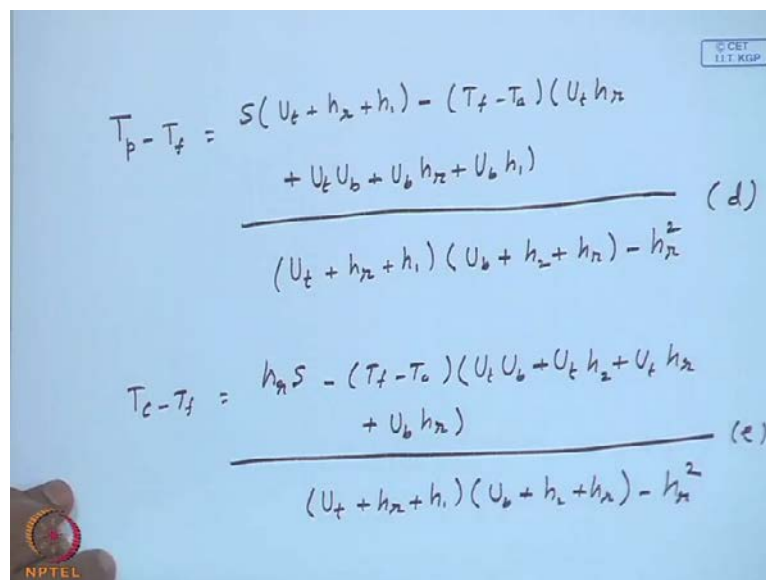 © CET
I.I.T. KGP
T_p - T_f = S(U_t + h_r + h_1) - (T_f - T_a)(U_t h_r
+ U_t U_b + U_b h_r + U_b h_1)
(U_t + h_r + h_1)(U_b + h_2 + h_r) - h_r^2
(d)
T_c - T_f = h_r S - (T_f - T_a)(U_t U_b + U_t h_2 + U_t h_r
+ U_b h_r)
(U_t + h_r + h_1)(U_b + h_2 + h_r) - h_r^2
(e)
NPTEL